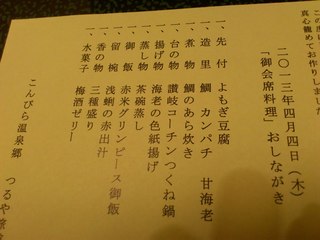 真心籠めてお作りしまし
二〇一三年四月四日（木）
「御会席料理」おしながき
一、先付 よもぎ豆腐
一、造里 鯛 カンパチ 甘海老
一、煮物 鯛のあら炊き
一、台の物 讃岐コーチンつくね鍋
一、揚げ物 海老の色紙揚げ
一、蒸し物 茶碗蒸し
一、御飯 赤米グリンピース御飯
一、留椀 浅蜊の赤出汁
一、香の物 三種盛り
一、水菓子 梅酒ゼリー
こんぴら温泉郷 つるや